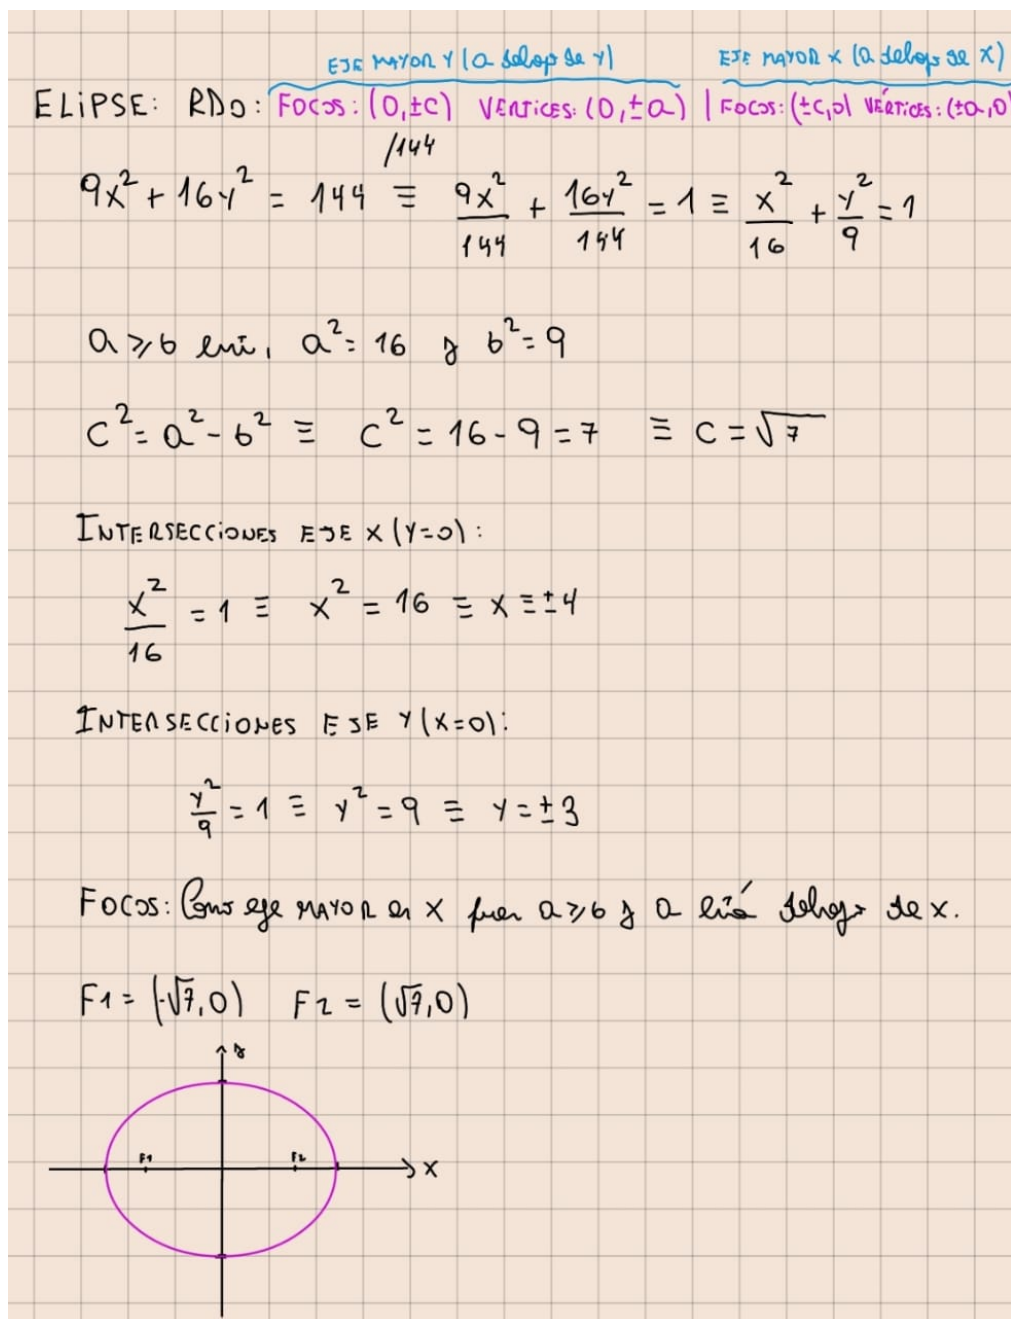 EJE MAYOR Y (a debajo de y) EJE MAYOR X (a debajo de X)
ELIPSE: RDO: FOCOS: (0,±C) VERTICES: (0,±a) | FOCOS: (±C,0) VÉRTICES: (±a,0
/144
9x² + 16y² = 144 ≡ 9x²/144 + 16y²/144 = 1 ≡ x²/16 + y²/9 = 1
a ≥ b a² = 16 y b² = 9
C² = a² - b² ≡ C² = 16 - 9 = 7 ≡ C = √7
INTERSECCIONES EJE X (Y=0):
x²/16 = 1 ≡ x² = 16 ≡ x = ±4
INTERSECCIONES EJE Y (X=0):
y²/9 = 1 ≡ y² = 9 ≡ y = ±3
FOCOS: Como eje MAYOR en X pues a ≥ b y a está debajo de x.
F1 = (-√7,0) F2 = (√7,0)
y
F1 F2
X